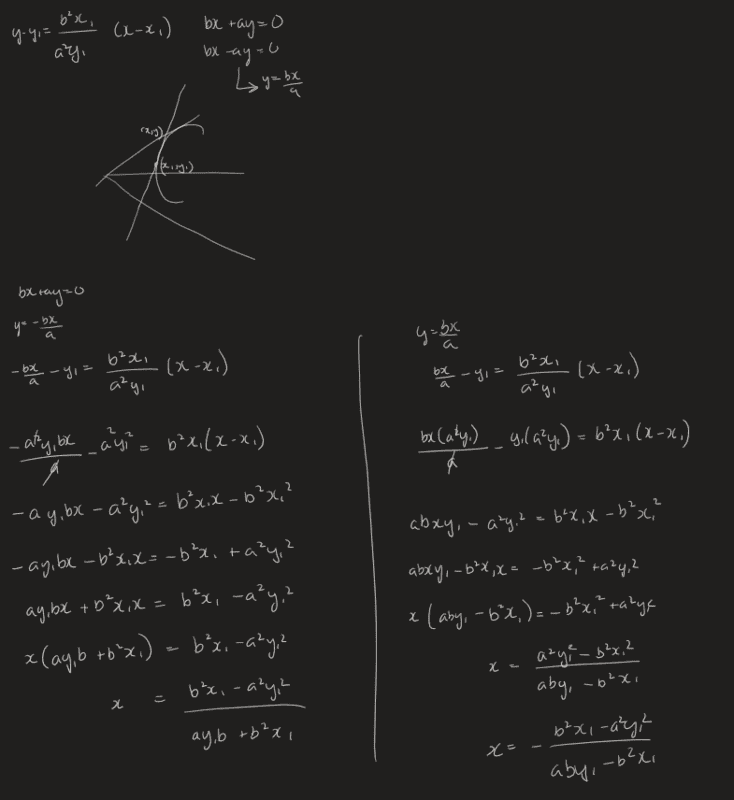 y-y₁ = b²x₁/a²y₁ (x-x₁)
bx + ay = 0
bx - ay = 0
↳ y = bx/a
(x,y)
(x₁,y₁)
bx+ay=0
y = -bx/a
-bx/a - y₁ = b²x₁/a²y₁ (x-x₁)
-a²y₁bx/a - a²y₁² = b²x₁(x-x₁)
-ay₁bx - a²y₁² = b²x₁x - b²x₁²
-ay₁bx - b²x₁x = -b²x₁ + a²y₁²
ay₁bx + b²x₁x = b²x₁ - a²y₁²
x(ay₁b + b²x₁) = b²x₁ - a²y₁²
x = b²x₁ - a²y₁²/ay₁b + b²x₁
y = bx/a
bx/a - y₁ = b²x₁/a²y₁ (x-x₁)
bx(a²y₁)/a - y₁(a²y₁) = b²x₁(x-x₁)
abxy₁ - a²y₁² = b²x₁x - b²x₁²
abxy₁ - b²x₁x = -b²x₁² + a²y₁²
x(aby₁ - b²x₁) = -b²x₁² + a²y₁²
x = a²y₁² - b²x₁²/aby₁ - b²x₁
x = - b²x₁ - a²y₁²/aby₁ - b²x₁